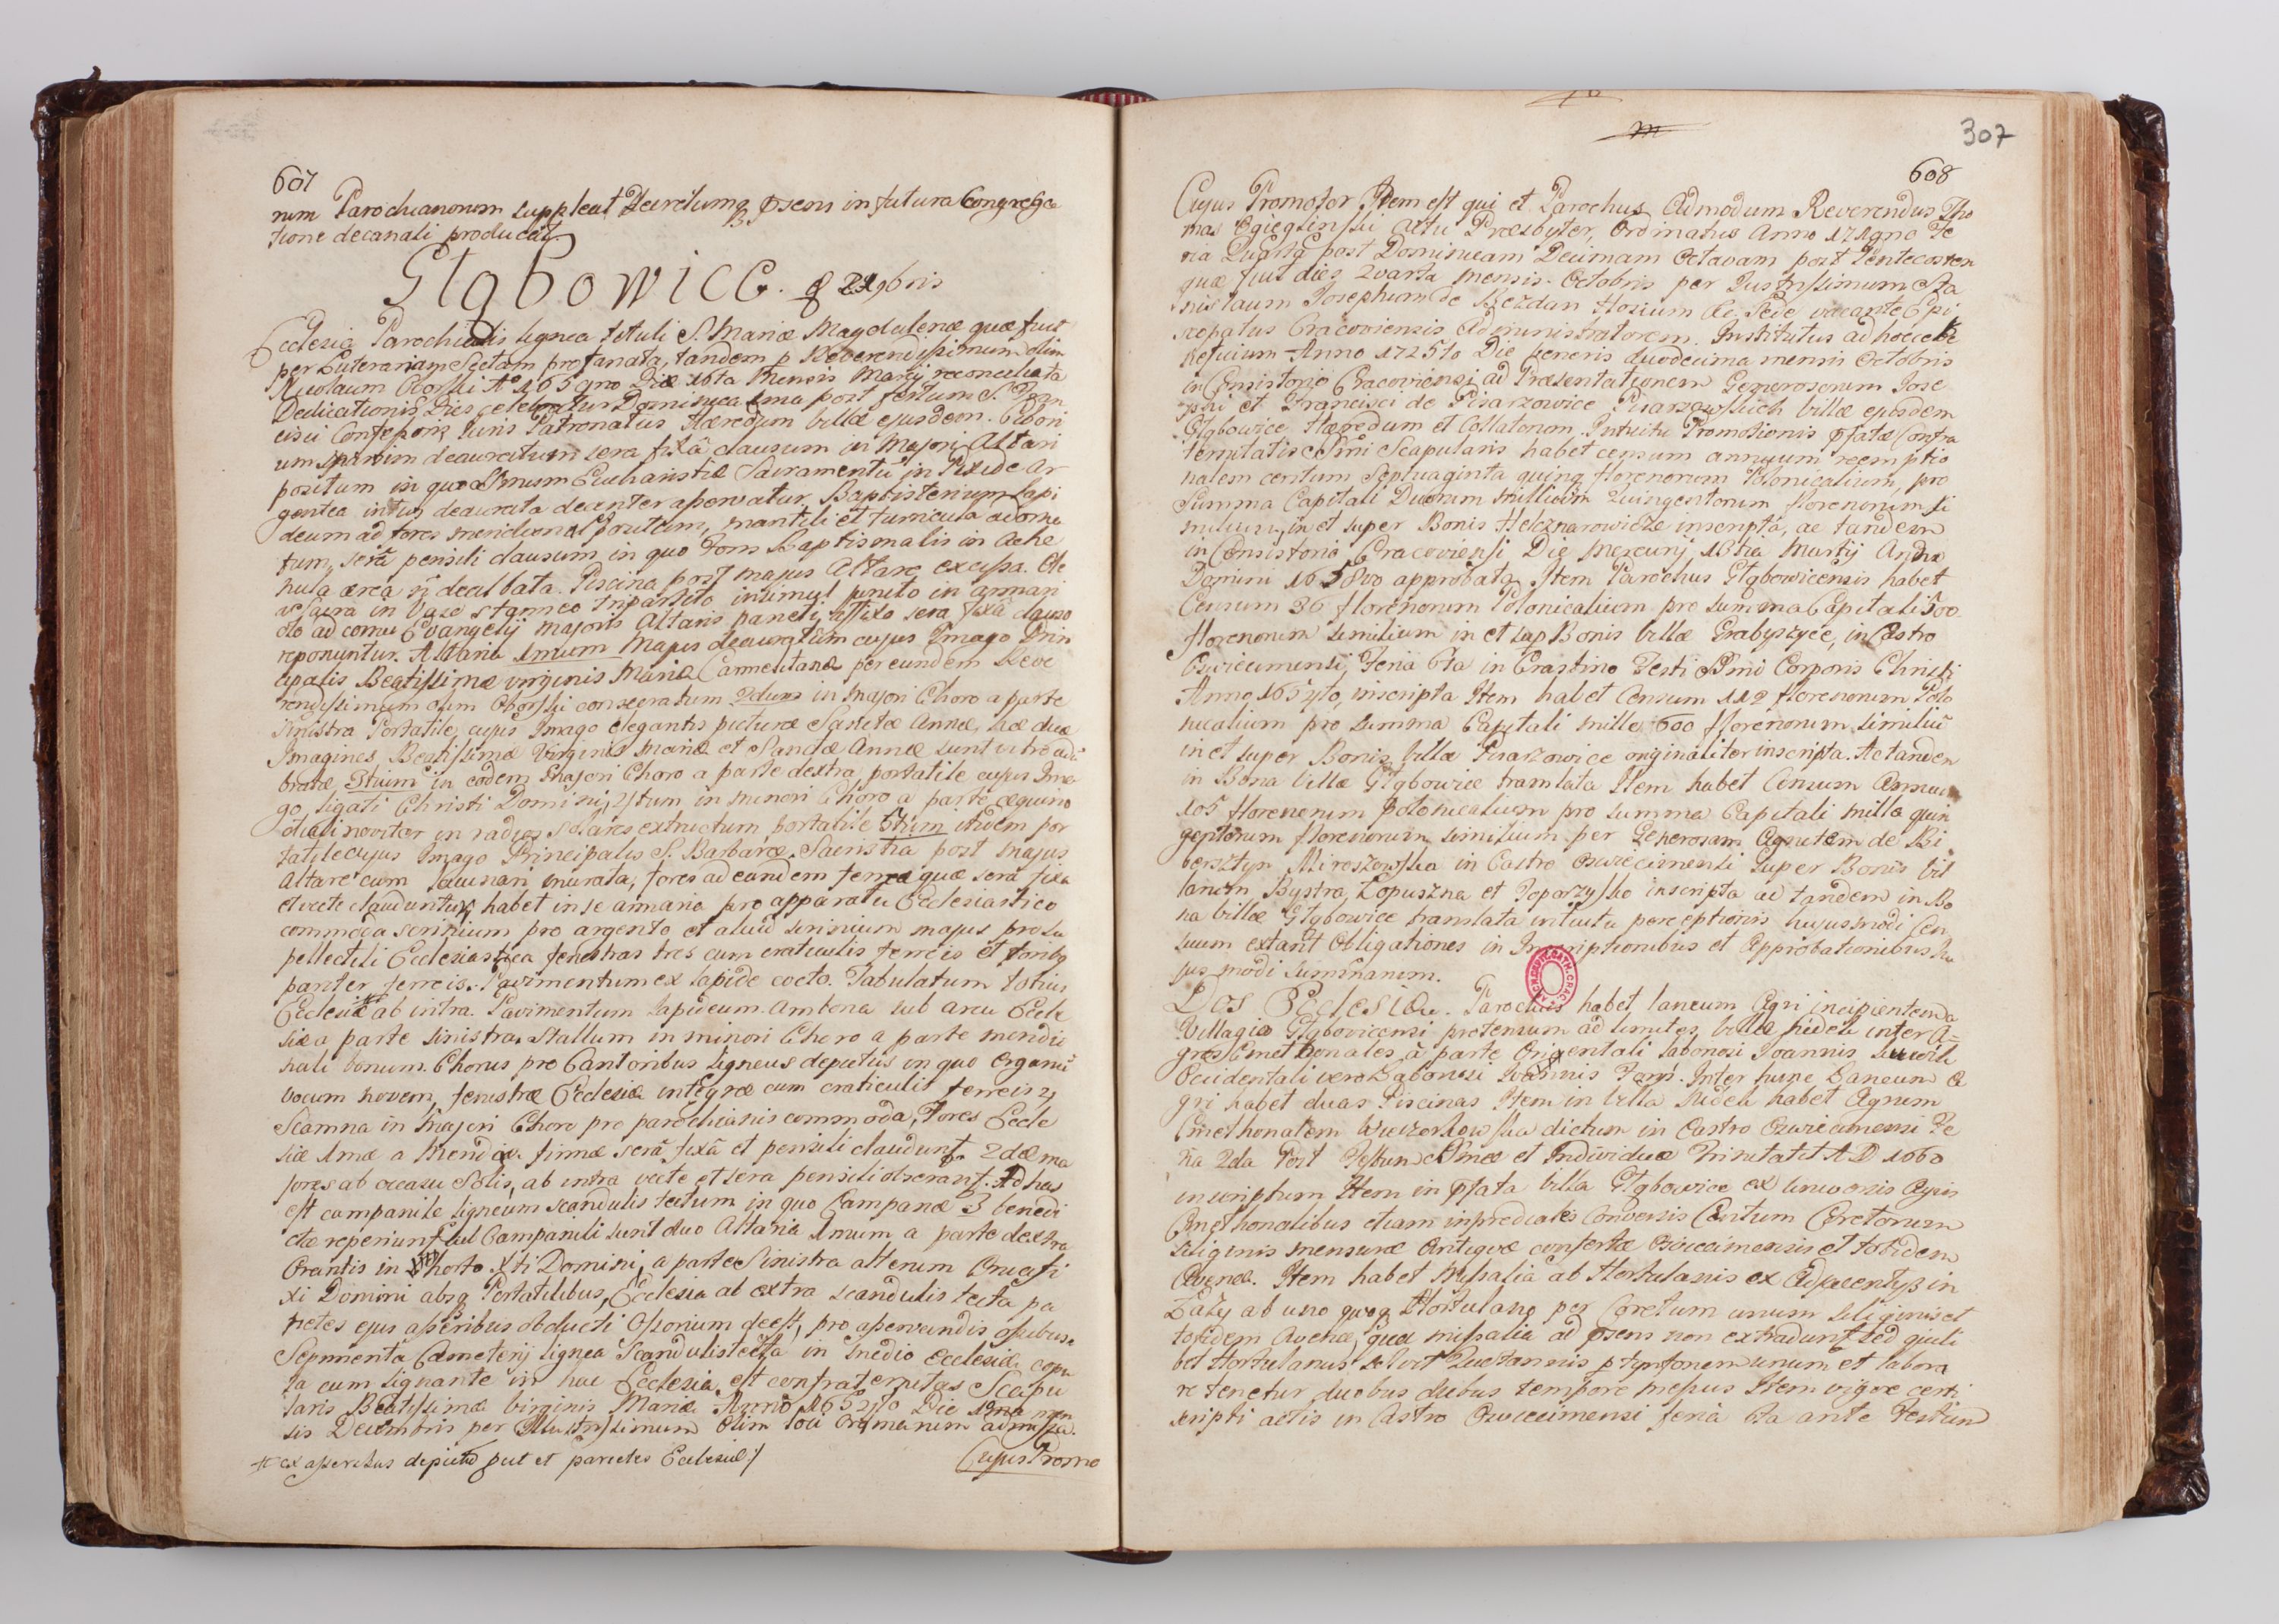 607
rum Parochianorum suppleat Decretumq psens in futura Congrega
tione decanali producat.
Głębowice. 9 bris
Ecclesia Parochialis lignea tituli S. Mariæ Magdalenæ quæ fuit
per Luteranam Sectam profanata, tandem p Reverendissimum olim
Nicolaum Oborski Aº 165 Die 16ta Mensis Martij reconciliata
Dedicationis Dies celebratur Dominica post festum S. Fran
cisci Confessoris Juris Patronatus Hæredum villæ ejusdem. Cibori
um deauratum sera fixâ clausum in Majori Altari
positum in quo Smum Eucharistiæ Sacramentū in Pixide Ar
gentea intus deaurata decenter asservatur. Baptisterium Lapi
deum ad fores meridional positum, mantili et turricula adorna
tum, serâ pensili clausum, in quo Fons Baptismalis in
nula ærea dealbata. Piscina post majus Altare excissa. Ole
a sacra in Vase stanneo tripartito insimul juncto in armari
olo ad cornu Evangelij majoris Altaris parieti affixo sera fixâ clauso
reponuntur. Altaria 1mum Majus deauratum cujus Imago Prin
cipalis Beatissimæ virginis Mariæ Carmelitanæ per eundem Reve
rendissimum olim Oborski consecratum 2dum in majori Choro a parte
sinistra Portatile, cujus Imago elegantis picturæ Sanctæ Annæ, hæ duæ
Imagines, Beatissimæ Virginis Mariæ et Sanctæ Annæ sunt vitro
bratæ, 3tium in eodem Majori Choro a parte dextra, portatile cujus Ima
go, ligati Christi Domini, 4tum in minori Choro a parte æquino
ctiali noviter in radios solares extructum portatile 5tum itidem por
tatile cujus Imago Principalis S. Barbaræ. Sacristia post Majus
Altare cum lacunari murata, fores ad eandem ferreæ quæ serâ fixa
et vecte clauduntur, habet in se armaria pro apparatu Ecclesiastico
commoda scrinium pro argento et aliud scrinium majus pro su
pellectili Ecclesiastica fenestras tres cum craticulis ferreis et foribus
pariter ferreis. Pavimentum ex lapide cocto. Tabulatum totius
Ecclesiæ ab intra. Pavimentum Lapideum. Ambona sub arcu Eccle
siæ a parte sinistra. Stallum in minori Choro a parte meridio
nali bonum. Chorus pro Cantoribus ligneus depictus in quo Organū
vocum novem, fenestræ Ecclesiæ integræ cum craticulis ferreis 4
Scamna in Majori Choro pro parochianis commoda, Fores Eccle
siæ 1mæ a Meridie firmæ serâ fixâ et pensili claudunt. 2dæ
fores ab occasu Solis, ab intra vecte et sera pensili obserant. Ad has
est campanile ligneum scandulis tectum in quo Campanæ 3 benedi
ctæ reperiunt sub Campanili sunt duo Altaria 1mum a parte dextra
Orantis in horto Xti Domini, a parte Sinistra alterum Crucifi
xi Domini absq Portatilibus, Ecclesia ab extra scandulis tecta pa
rietes ejus asseribus obducti Ossorium deest, pro asservandis ossibus.
Sepimenta Cæmeterij lignea Scandulis tecta in medio Ecclesiæ copu
la cum signante in hac Ecclesia est confraternitas Scapu
laris Beatissimæ Virginis Mariæ Anno Die men
sis Decembris per Illustrissimum Olim loci Ordinarium admissa.
# ex asseribus depictū put et parietes Ecclesiæ:/
Cujus Promo
307
608
Cujus Promotor Idem est qui et Parochus Admodum Reverendus Tho
mas actu Præsbyter, Ordinatus Anno 1719no Fe
ria Quarta post Dominicam Decimam Octavam post Pentecosten
quæ fuit dies quarta mensis Octobris per Illustrissimum Sta
nislaum Josephum de Bezdan Hosium Ac Sede vacante Epi
scopatus Cracoviensis Administratorem. Institutus ad hocce be
neficium Anno 1725to Die Veneris duodecima mensis Octobris
in Consistorio Cracoviensi ad Præsentationem Generosorum Jose
phi et Francisci de Pisarzowice Pisarzowskich villæ ejusdem
Głębowice Hæredum et Collatorum. Intuitu Promotionis pfatæ Confra
ternitatis SSmi Scapularis habet censum annuum reemptio
nalem centum Septuaginta quinq florenorum Polonicalium, pro
Summa Capitali Duorum Millium Quingentorum florenorum si
milium, in et super Bonis inscripta, ac tandem
in Consistorio Cracoviensi Die Mercurij 13tia Martij Anno
Domini 1658vo approbata, Item Parochus Głębowicensis habet
Censum 36 florenorum Polonicalium pro summa Capitali 500
florenorum similium in et sup Bonis villæ Grabyszyce, in Castro
Osviecimensi, Feria 6ta in Crastino Festi SSmi Corporis Christi
Anno inscripta Item habet Censum 112 florenorum Polo
nicalium pro summa Capitali mille 600 florenorum similiū
in et super Bonis villæ Pisarzowice originaliter inscripta. Ac tandem
in Bona villæ Głębowice translata Item habet Censum Annuū
105 florenorum polonicalium pro summa Capitali mille quin
gentorum florenorum similium per Generosam Agnetem de Bi
bersztyn Miroszowska in Castro Osviecimensi super Bonis vil
larum Bystra, Łopuszna et Toporzysko inscripta ac tandem in Bo
na villæ Głębowice translata intuitu perceptionis hujusmodi Cen
suum extant Obligationes in Inscriptionibus et Approbationibus hu
jusmodi summarum.
Dos Ecclesiæ. Parochus habet laneum Agri incipientem a
Villagio Głębovicensi protensum ad limites villæ Nidek inter A=
gros Cmethonales, à parte Orientali laboriosi Joannis
Occidentali vero Laboriosi Joannis Inter hunc Laneum A
gri habet duas Piscinas Item in villa Nidek habet Agrum
Cmethonalem dictum in Castro Osviecimensi Fe
ria 2da Post Festum SSmæ et Individuæ Trinitatis A D 1660
inscriptum Item in pfata villa Głębowice ex Agris
Cmethonalibus etiam in prædiales conversis Centum Coretorum
siliginis mensuræ Antiquæ confertæ Osviecimensis et totidem
Avenæ. Item habet Missalia ab Hortulanis ex Adjacentijs in
Łazy ab uno quoq Hortulano per Coretum unum siliginis et
totidem Avenæ, quæ missalia ad psens non extradunt sed quili
bet Hortulanus solvit Quotannis p tynfonem unum et labora
re tenetur duobus diebus tempore messis Item vigore certi
scripti actis in Castro Osviecimensi feria 6ta ante Festum